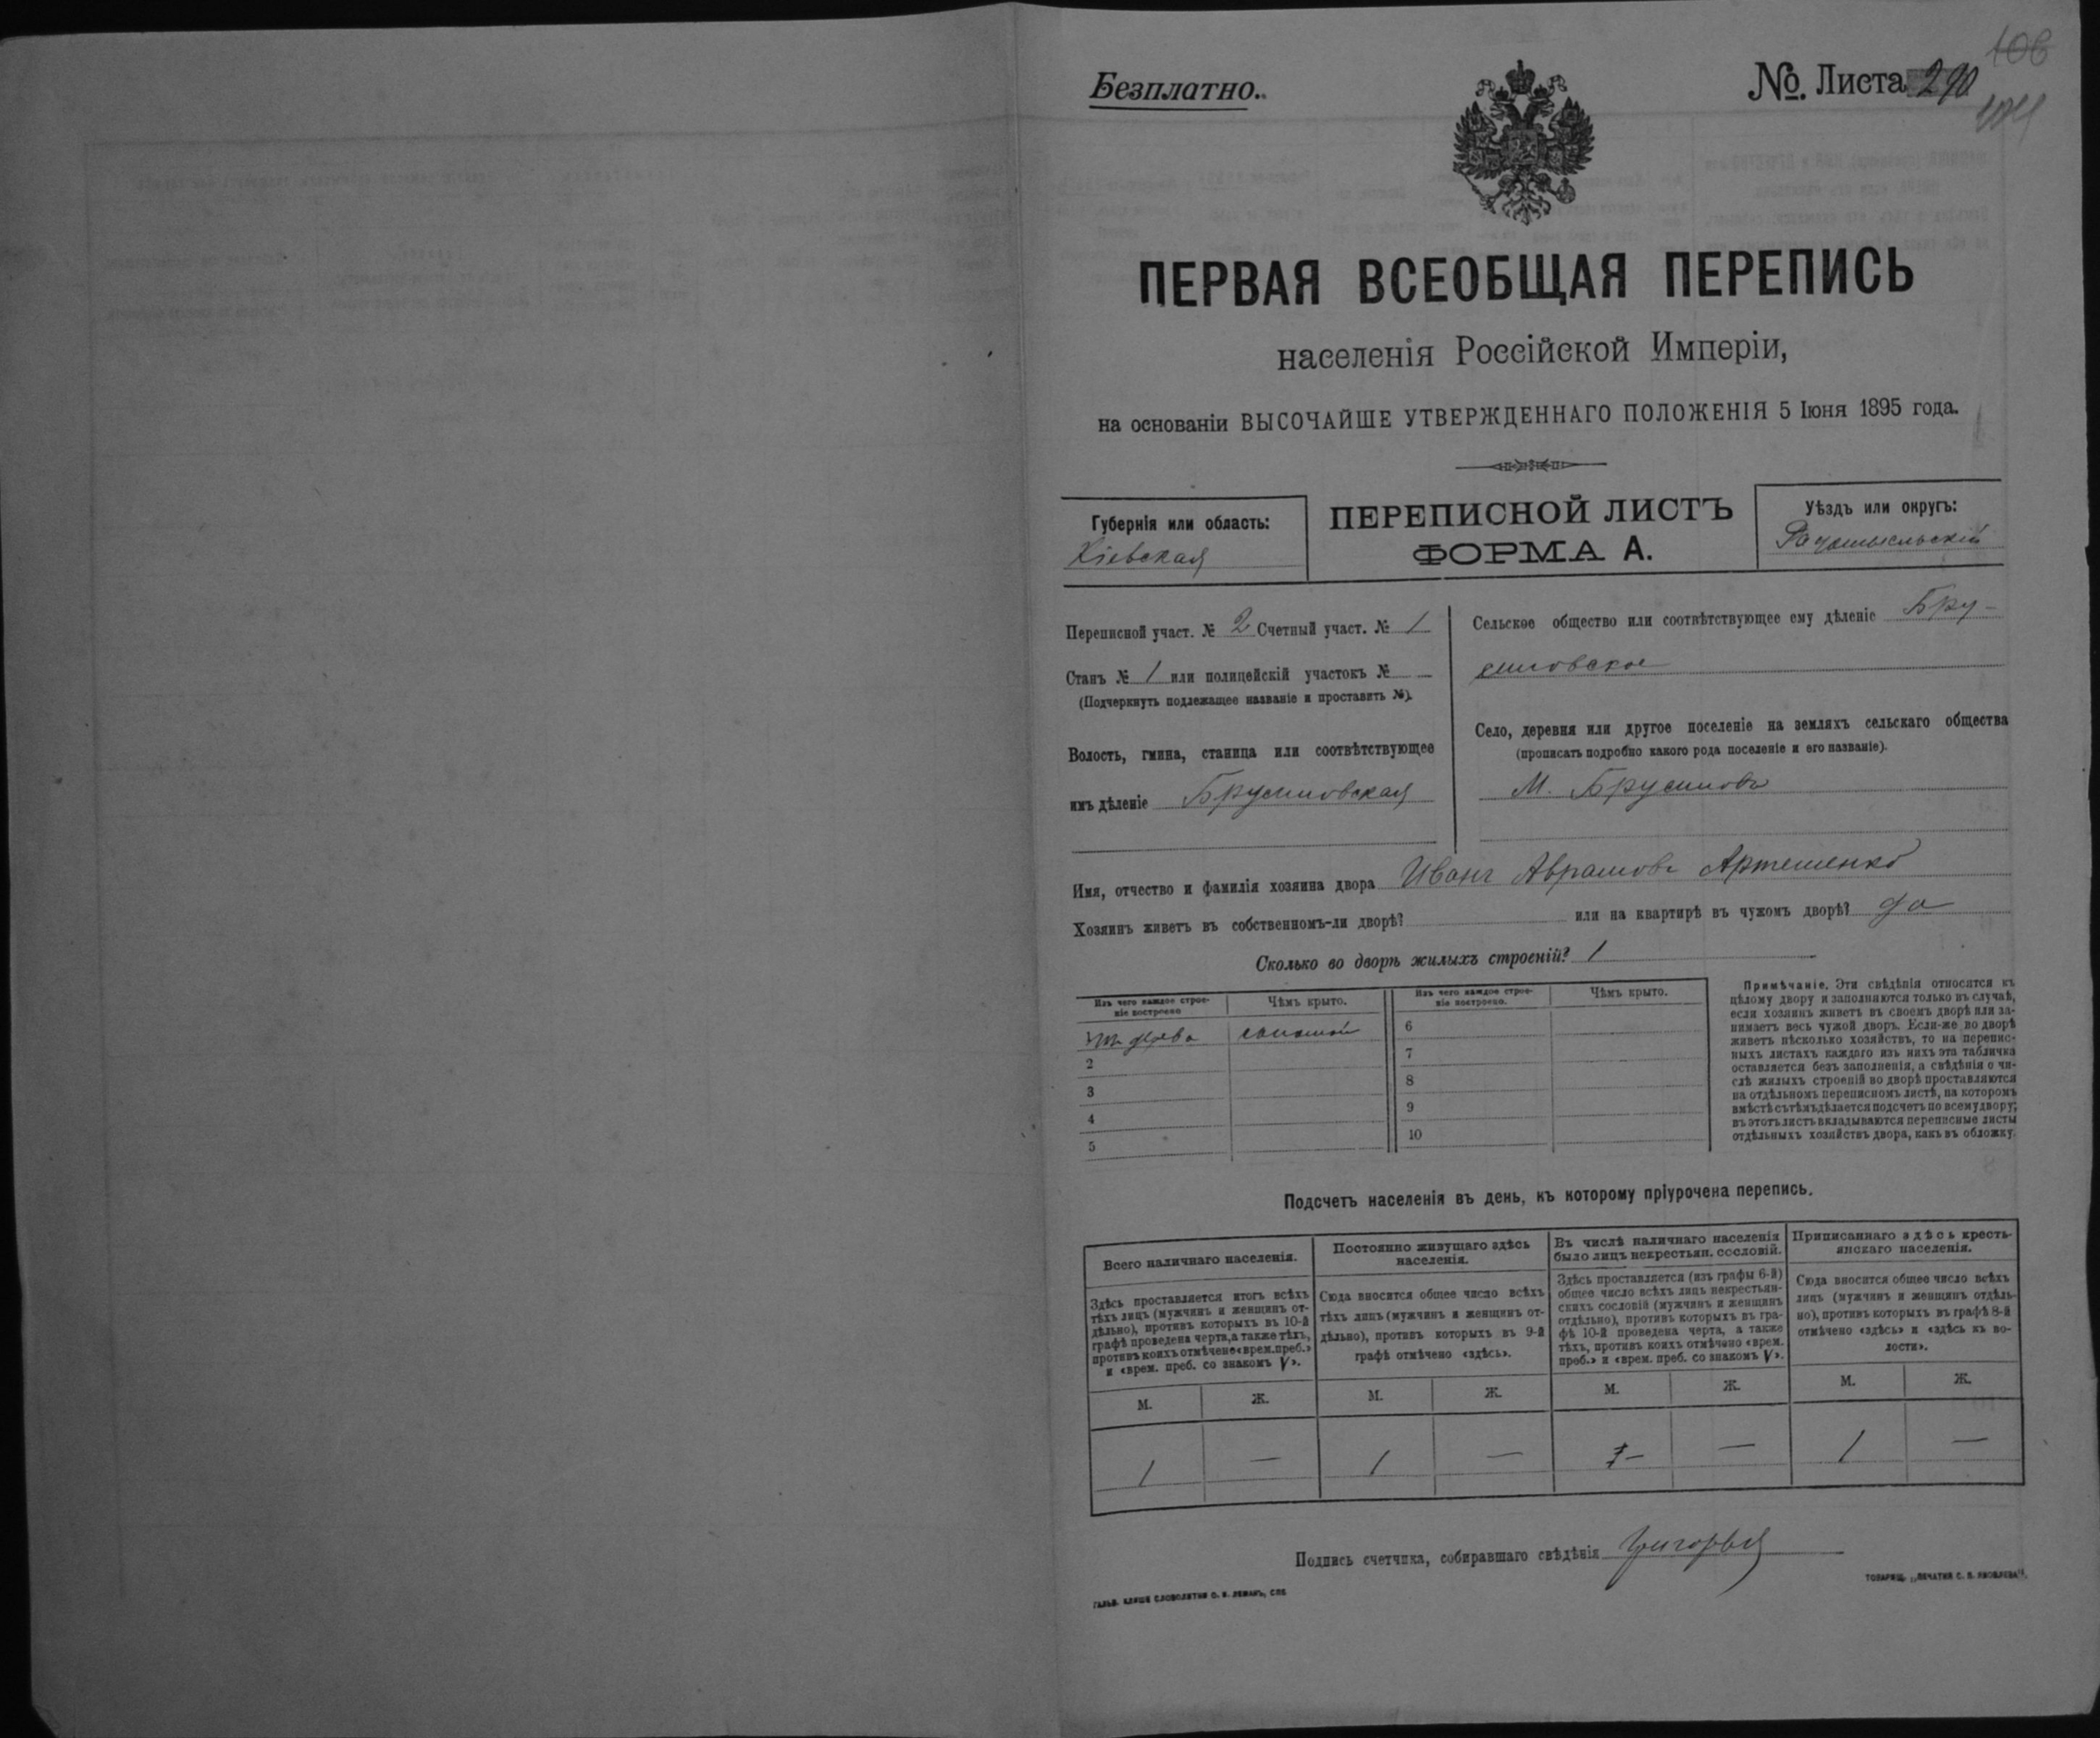 Безплатно.
№. Листа 290
106
ПЕРВАЯ ВСЕОБЩАЯ ПЕРЕПИСЬ
населенія Россійской Имперіи,
на основаніи ВЫСОЧАЙШЕ УТВЕРЖДЕННАГО ПОЛОЖЕНІЯ 5 Іюня 1895 года.
Губернія или область:
Кіевская
ПЕРЕПИСНОЙ ЛИСТЪ
ФОРМА А.
Уѣздъ или округъ:
Радомысльскій
Переписной участ. № 2 Счетный участ. № 1
Станъ № 1 или полицейскій участокъ № —
(Подчеркнуть подлежащее названіе и проставить №).
Волость, гмина, станица или соотвѣтствующее
имъ дѣленіе Брусиловская
Сельское общество или соотвѣтствующее ему дѣленіе Бру-
силовское
Село, деревня или другое поселеніе на земляхъ сельскаго общества
(прописать подробно какого рода поселеніе и его названіе).
М. Брусиловъ
Имя, отчество и фамилія хозяина двора Иванъ Аврамовъ Артеменко
Хозяинъ живетъ въ собственномъ-ли дворѣ? или на квартирѣ въ чужомъ дворѣ? да
Сколько во дворѣ жилыхъ строеній? 1
Изъ чего каждое строе-
ніе построено
Чѣмъ крыто.
Изъ чего каждое строе-
ніе построено.
Чѣмъ крыто.
изъ дерева соломой
2
3
4
5
6
7
8
9
10
Примѣчаніе. Эти свѣдѣнія относятся къ
цѣлому двору и заполняются только въ случаѣ,
если хозяинъ живетъ въ своемъ дворѣ или за-
нимаетъ весь чужой дворъ. Если-же во дворѣ
живетъ нѣсколько хозяйствъ, то на перепис-
ныхъ листахъ каждаго изъ нихъ эта табличка
оставляется безъ заполненія, а свѣдѣнія о чи-
слѣ жилыхъ строеній во дворѣ проставляются
на отдѣльномъ переписномъ листѣ, на которомъ
вмѣстѣ съ тѣмъ дѣлается подсчетъ по всему двору;
въ этотъ листъ вкладываются переписные листы
отдѣльныхъ хозяйствъ двора, какъ въ обложку.
Подсчетъ населенія въ день, къ которому пріурочена перепись.
Всего наличнаго населенія.
Здѣсь проставляется итогъ всѣхъ
тѣхъ лицъ (мужчинъ и женщинъ от-
дѣльно), противъ которыхъ въ 10-й
графѣ проведена черта, а также тѣхъ,
противъ коихъ отмѣчено «врем. преб.»
и «врем. преб. со знакомъ V».
Постоянно живущаго здѣсь
населенія.
Сюда вносится общее число всѣхъ
тѣхъ лицъ (мужчинъ и женщинъ от-
дѣльно), противъ которыхъ въ 9-й
графѣ отмѣчено «здѣсь».
Въ числѣ наличнаго населенія
было лицъ некрестьян. сословій.
Здѣсь проставляется (изъ графы 6-й)
общее число всѣхъ лицъ некрестьян-
скихъ сословій (мужчинъ и женщинъ
отдѣльно), противъ которыхъ въ гра-
фѣ 10-й проведена черта, а также
тѣхъ, противъ коихъ отмѣчено «врем.
преб.» и «врем. преб. со знакомъ V».
Приписаннаго здѣсь кресть-
янскаго населенія.
Сюда вносится общее число всѣхъ
лицъ (мужчинъ и женщинъ отдѣль-
но), противъ которыхъ въ графѣ 8-й
отмѣчено «здѣсь» и «здѣсь къ во-
лости».
М. Ж. М. Ж. М. Ж. М. Ж.
1 — 1 — — — 1 —
Подпись счетчика, собиравшаго свѣдѣнія
ГАЛЬВ. КЛИШЕ СЛОВОЛИТНИ О. И. ЛЕМАНЪ, СПБ.
ТОВАРИЩ. „ПЕЧАТНЯ С. П. ЯКОВЛЕВА".